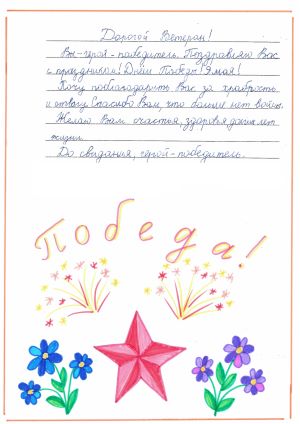 Дорогой Ветеран!
Вы-герой-победитель. Поздравляю Вас
с праздником! Днём Победы! 9 мая!
Хочу поблагодарить Вас за храбрость
и отвагу. Спасибо Вам, что больше нет войны.
Желаю Вам счастья, здоровья, долгих лет
жизни.
До свидания, герой-победитель.
Победа!